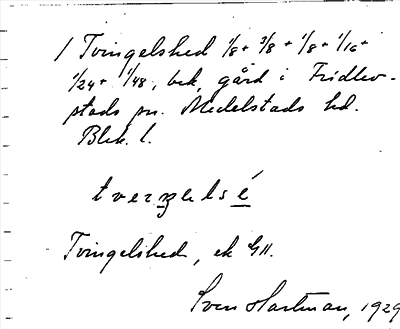 1 Tvingelshed 1/8 + 3/8 + 1/8 + 1/16 +
1/24 + 1/48, bek. gård i Fridlev-
stads sn. Medelstads hd.
Blek. l.
tveŋelsé
Tvingelshed, ek GII.
Sven Hartman, 1929